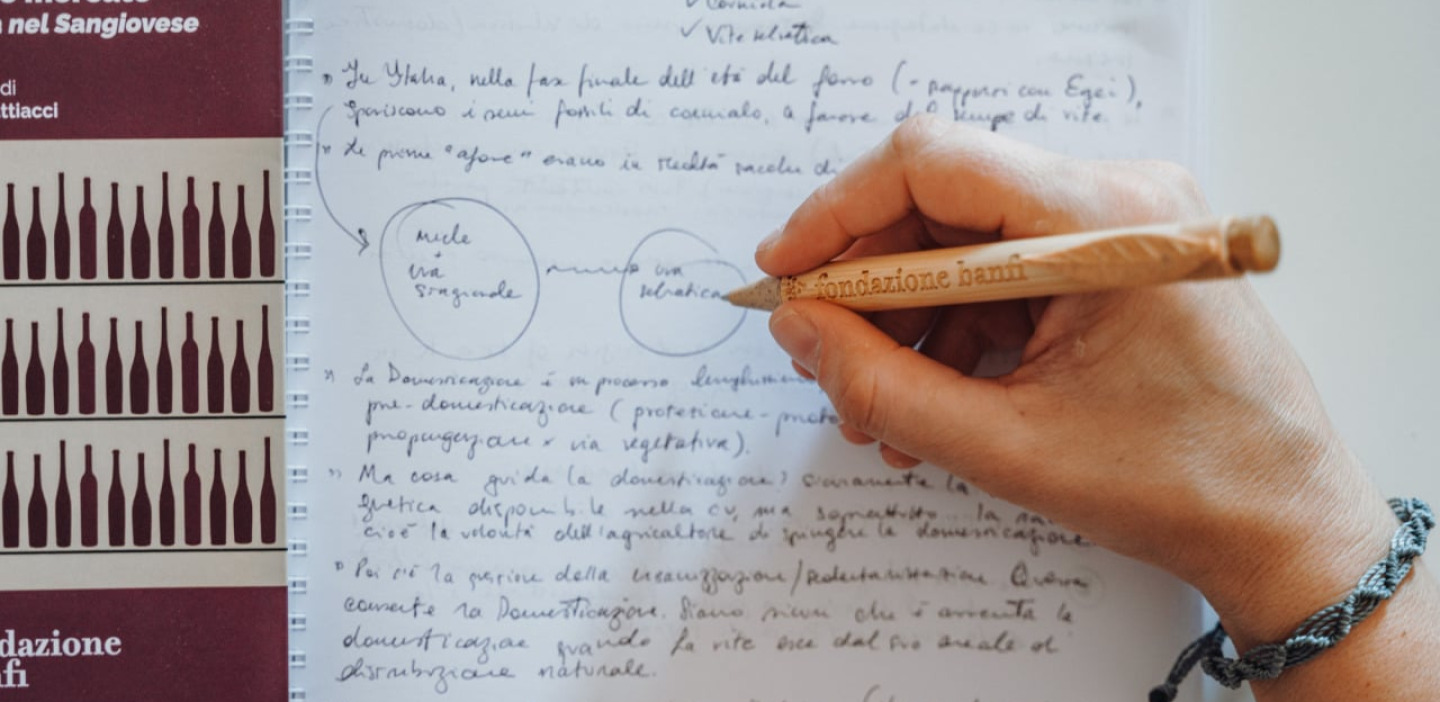 nel Sangiovese
di
ttiacci
dazione
nfi
✓ Corniola
✓ Vite selvatica
» In Italia, nella fase finale dell'età del ferro (- rapporti con Egei),
spariscono i semi fossili di corniolo, a favore del tempo di vite.
» Le prime "afore" erano in realtà
miele
+
uva
stagionale
uva
selvatica
fondazione banfi
» La Domesticazione è un processo
pre-domesticazione (protezione -
propagazione x via vegetativa).
» Ma cosa guida la domesticazione? la
genetica disponibile nella cv, ma soprattutto la
cioè la volontà dell'agricoltore di spingere la domesticazione
» Poi c'è la
la Domesticazione. Siamo sicuri che è avvenuta la
domesticazione quando la vite esce dal suo areale di
distribuzione naturale.